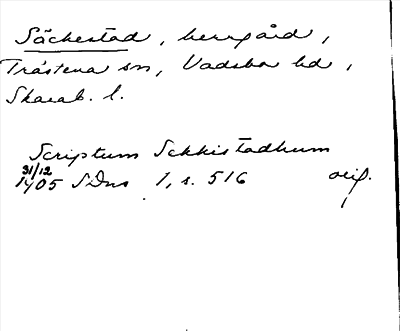 Säckestad, herrgård,
Trästena sn, Vadsbo hd,
Skarab. l.
Scriptum Sekkistadhum
31/12
1405 SDns 1, s. 516 orig.